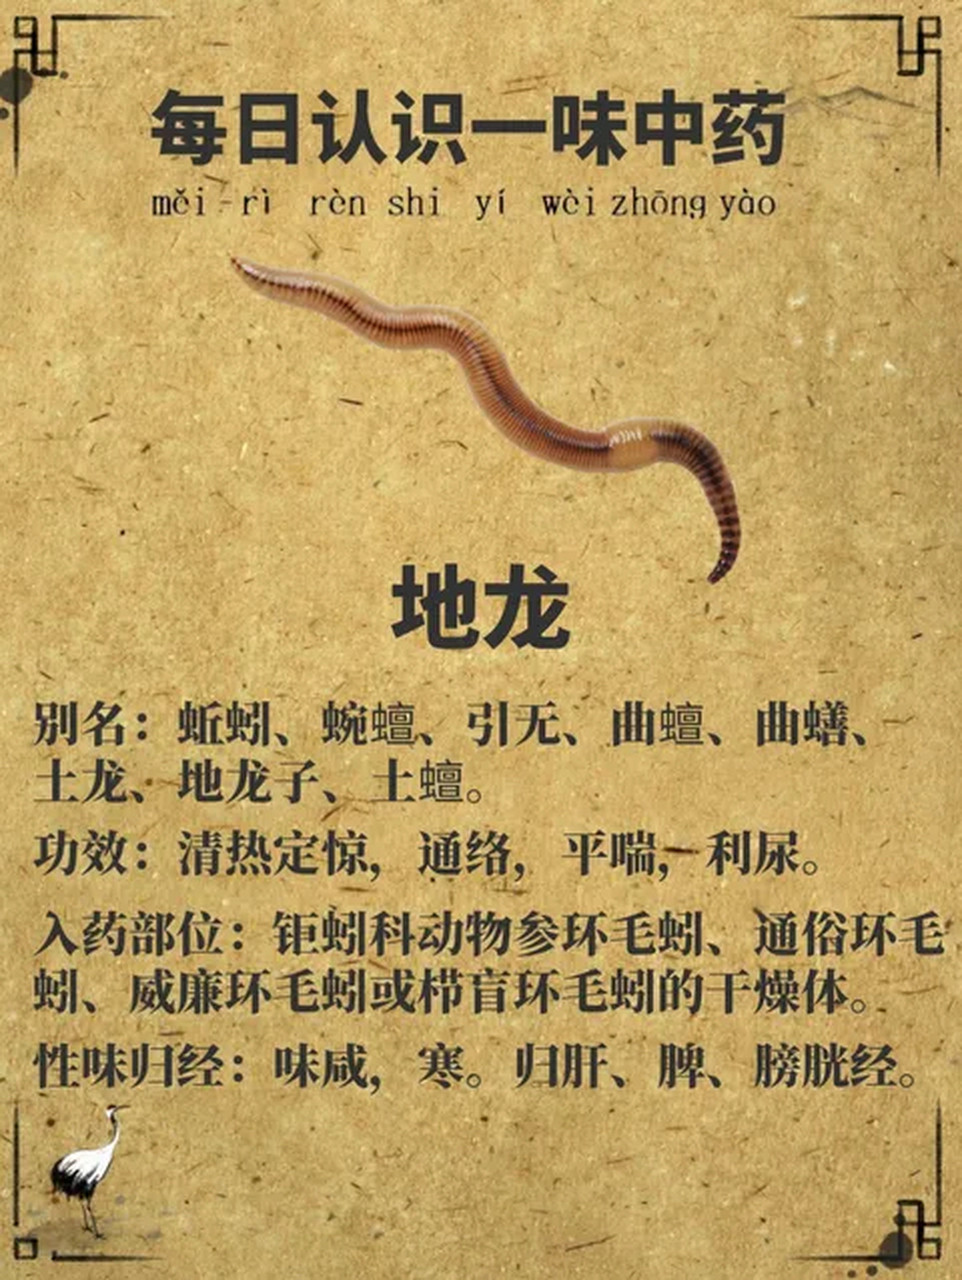 每日认识一味中药
měi rì rèn shi yí wèi zhōng yào
地龙
别名：蚯蚓、蜿蟺、引无、曲蟺、曲蟮、
土龙、地龙子、土蟺。
功效：清热定惊，通络，平喘，利尿。
入药部位：钜蚓科动物参环毛蚓、通俗环毛
蚓、威廉环毛蚓或栉盲环毛蚓的干燥体。
性味归经：味咸，寒。归肝、脾、膀胱经。